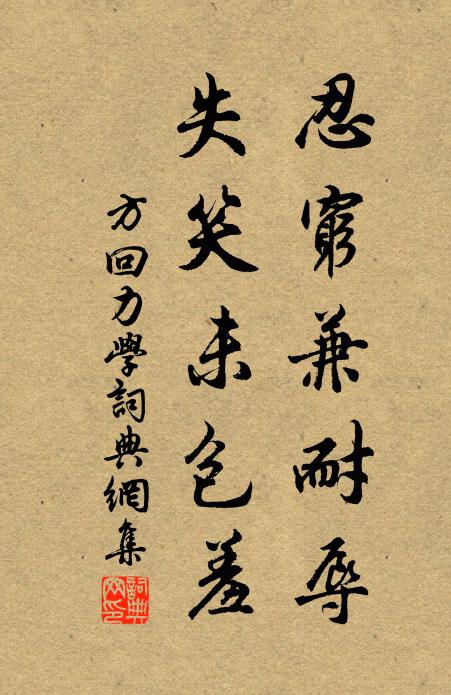 忍窮兼耐辱
失笑未包羞
方回力學詞典網集
詞典
网印